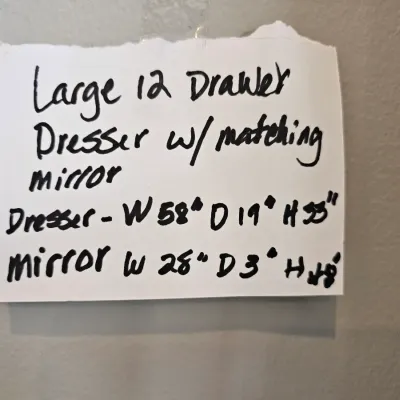 Large 12 Drawer
Dresser w/ matching
mirror
Dresser - W 58" D 19" H 35"
mirror W 28" D 3" H 48"